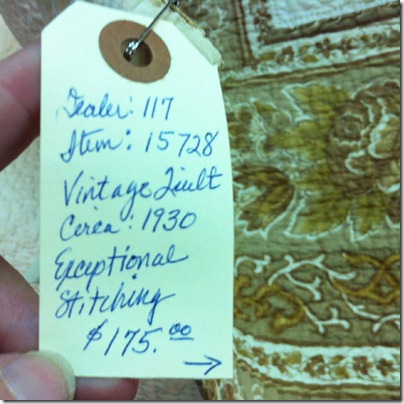 Dealer: 117
Item: 15728
Vintage Quilt
Circa: 1930
Exceptional
Stitching
$175.00
→